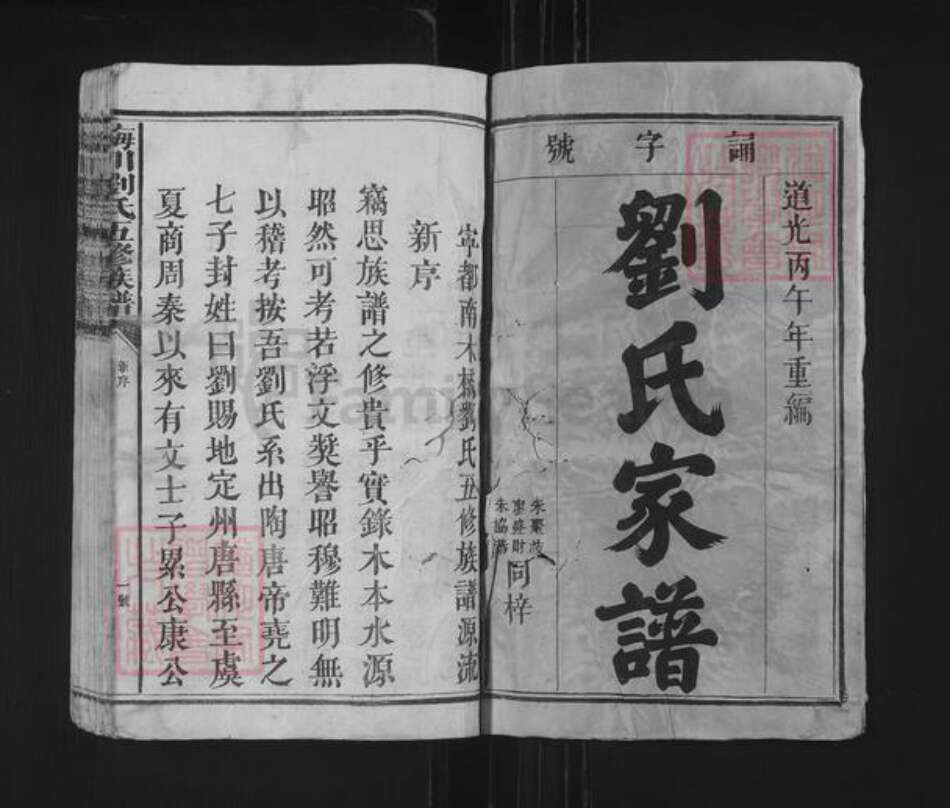 誦字號
道光丙午年重編
劉氏家譜
朱聚
財
朱協
同梓
寧都南木樹劉氏五修族譜源流
新序
竊思族譜之修貴乎實錄木本水源
昭然可考若浮文獎譽昭穆難明無
以稽考按吾劉氏系出陶唐帝堯之
七子封姓曰劉賜地定州唐縣至虞
夏商周秦以來有文士子累公康公
梅川劉氏五修族譜
新序
一號